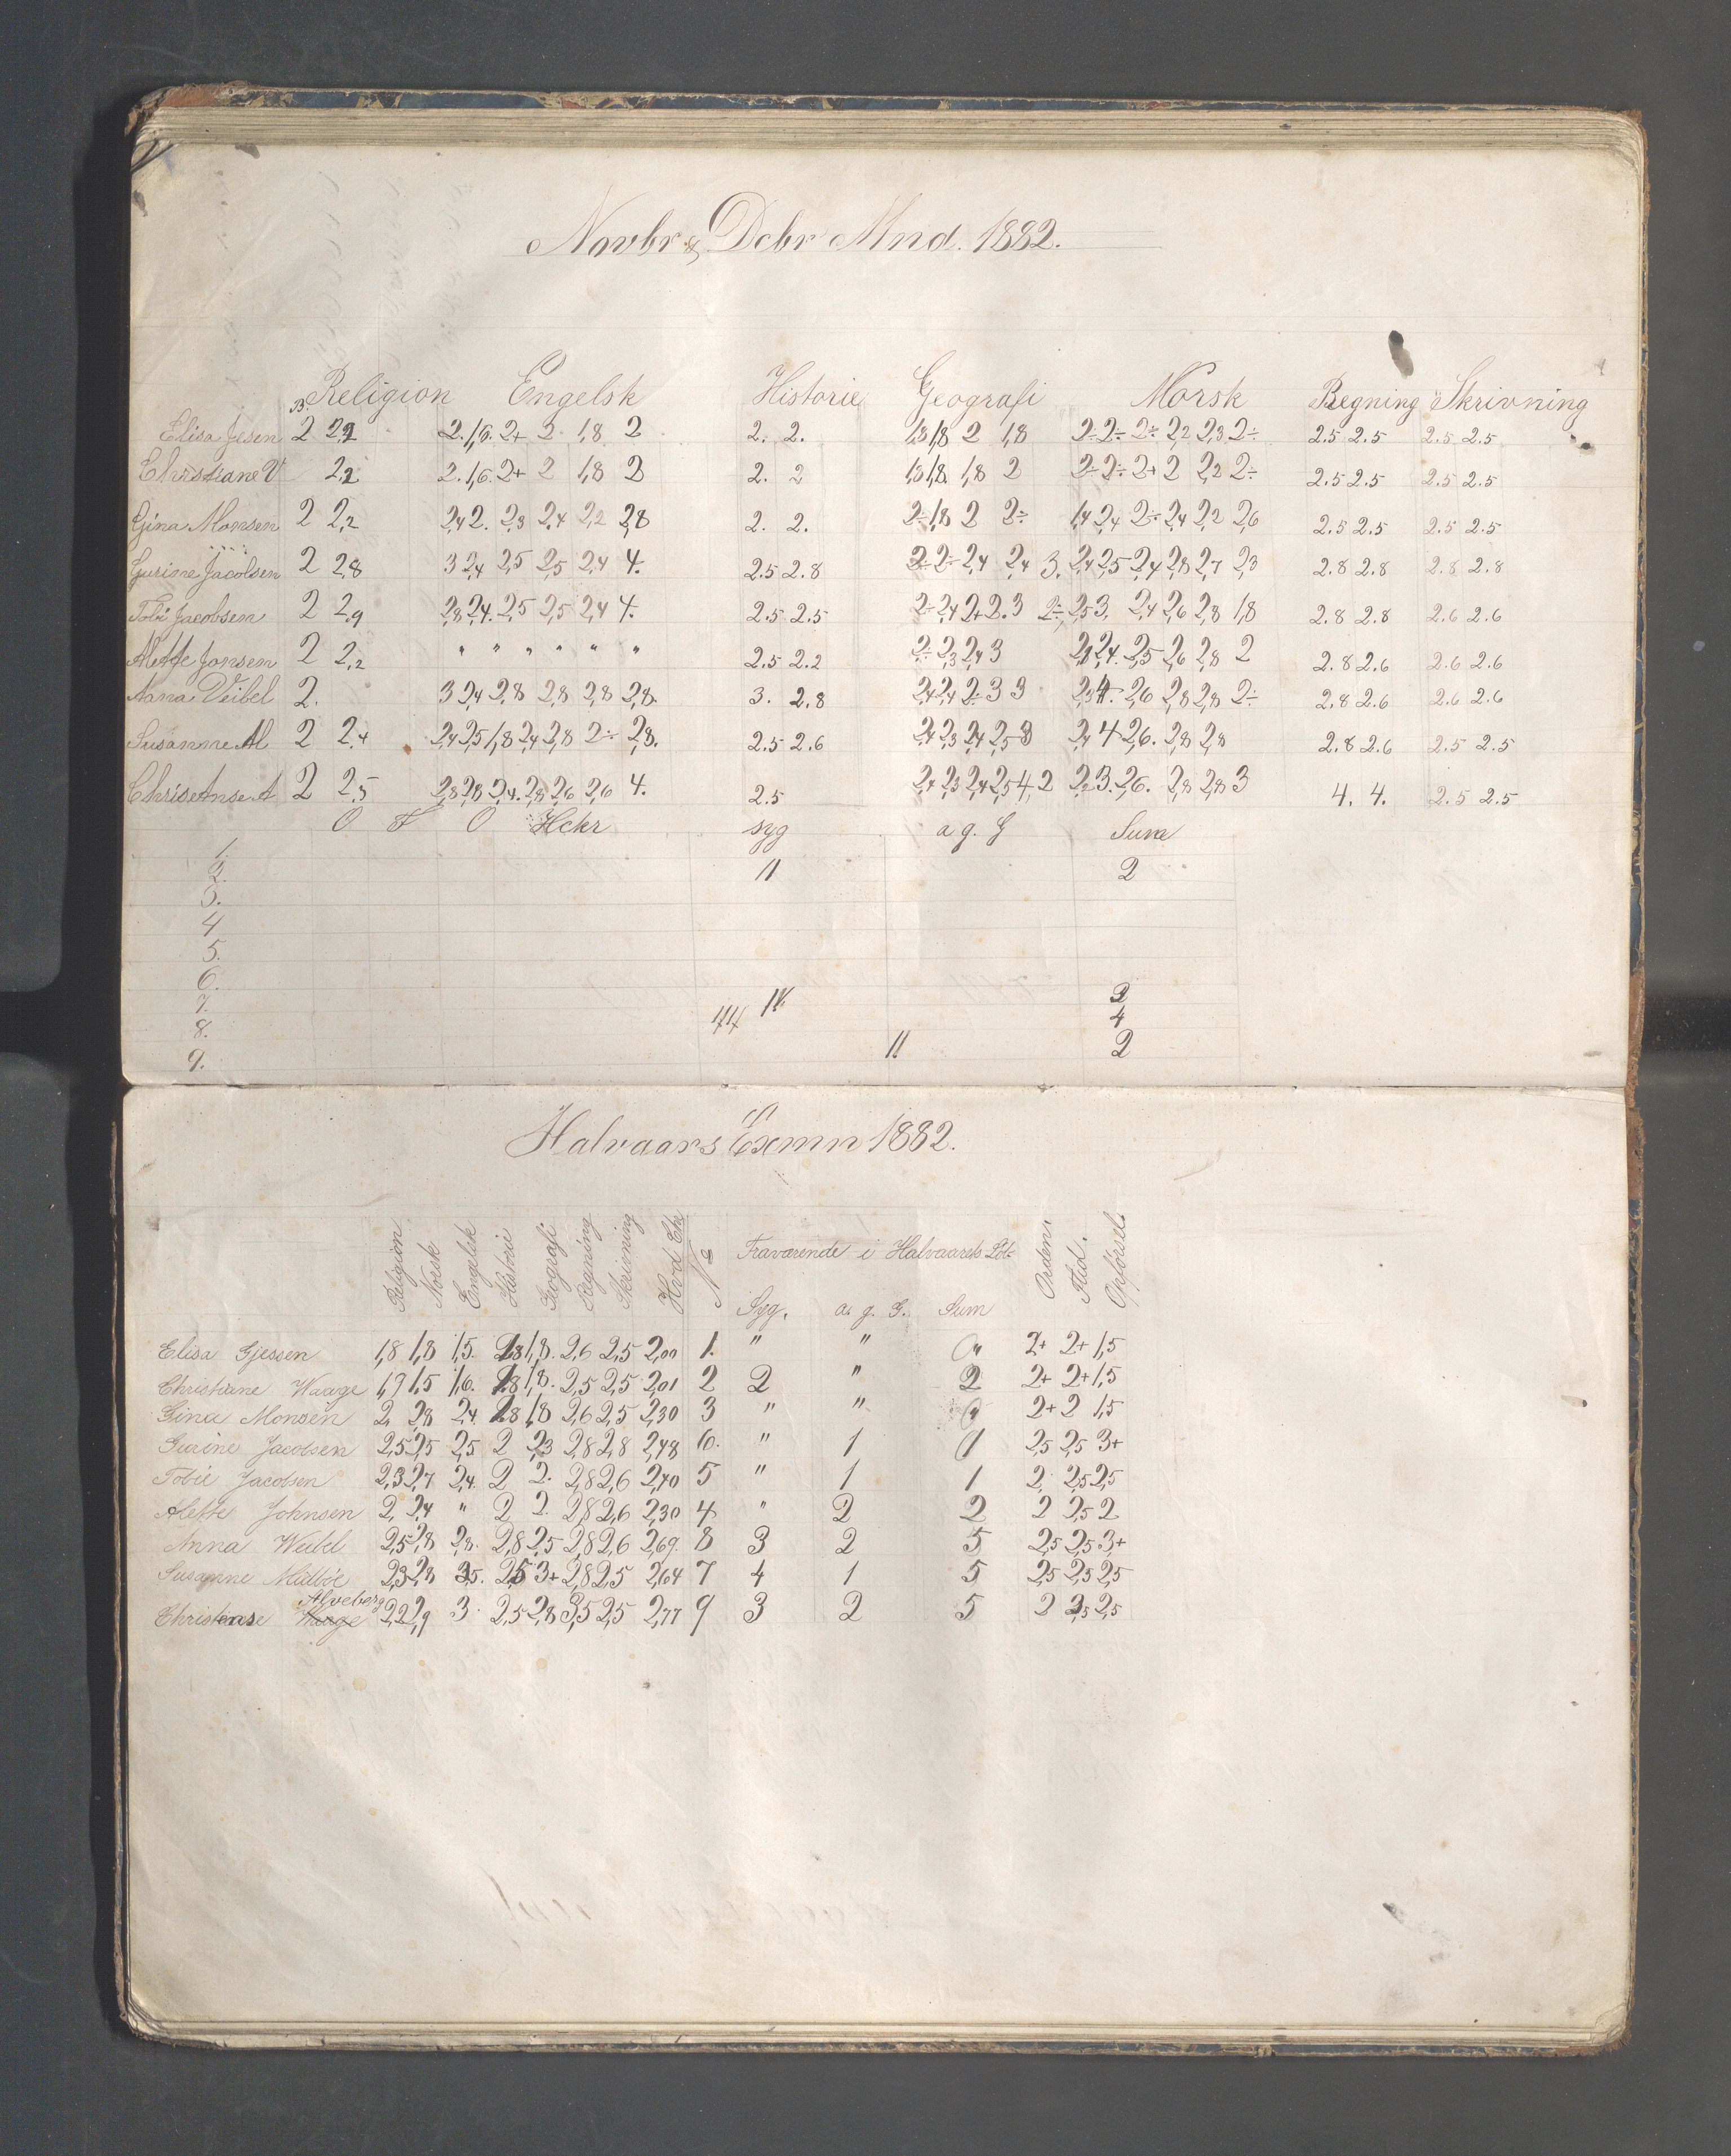 Novbr & Dcbr Mnd. 1882.
B. Religion Engelsk Historie Geografi Norsk Regning Skrivning
Elisa Jesen 2 2,2 2. 1,6. 2+ 2 1,8 2 2. 2. 1,8 1,8 2 1,8 2÷ 2÷ 2÷ 2,2 2,3 2÷ 2.5 2.5 2.5 2.5
Christiane V 2,2 2. 1,6. 2+ 2 1,8 2 2. 2 1,8 1,8. 1,8 2 2÷ 2÷ 2+ 2 2,2 2÷ 2.5 2.5 2.5 2.5
Gina Monsen 2 2,2 2,4 2. 2,3 2,4 2,2 2,8 2. 2. 2÷ 1,8 2 2÷ 1,4 2,4 2÷ 2,4 2,2 2,6 2.5 2.5 2.5 2.5
Gurine Jacobsen 2 2,8 3 2,4 2,5 2,5 2,4 4. 2.5 2.8 2÷ 2÷ 2,4 2,4 3. 2,4 2,5 2,4 2,8 2,7 2,3 2.8 2.8 2.8 2.8
Tobi Jacobsen 2 2,9 2,8 2,4. 2,5 2,5 2,4 4. 2.5 2.5 2÷ 2,4 2+ 2. 3 2÷ 2,5 3. 2,4 2,6 2,8 1,8 2.8 2.8 2.6 2.6
Alette Jonsen 2 2,2 " " " " " " 2.5 2.2 2÷ 2,3 2,4 3 2,1 2,4. 2,5 2,6 2,8 2 2.8 2.6 2.6 2.6
Anna Veibel 2. 3 2,4 2,8 2,8 2,8 2,8. 3. 2.8 2,4 2,4 2÷ 3 3 2,3 4. 2,6 2,8 2,8 2÷ 2.8 2.6 2.6 2.6
Susanne M 2 2,4 2,4 2,5 1,8 2,4 2,8 2÷ 2,8. 2.5 2.6 2,4 2,3 2,4 2,5 3 2,4 4 2,6. 2,8 2,8 2.8 2.6 2.5 2.5
Christense A 2 2,5 2,8 2,8 2,4. 2,8 2,6 2,6 4. 2.5 2,4 2,3 2,4 2,5 4,2 2,2 3. 2,6. 2,8 2,8 3 4. 4. 2.5 2.5
O F O Hckr syg a g. G Suma
1.
2. 11 2
3.
4
5.
6.
7. 3
8. 4
9. 11 2
Halvaars Exmn 1882.
Religion Norsk Engelsk Historie Geografi Regning Skrivning Hvd Ctr No Fraværende i Halvaarets Löb Orden. Flid. Opförsel.
Syg. a. g. G. Sum
Elisa Gjessen 1,8 1,8 1,5. 1,8 1,8. 2,6 2,5 2,00 1. " " " 2+ 2+ 1,5
Christiane Waage 1,9 1,5 1,6. 1,8 1,8. 2,5 2,5 2,01 2 2 " 2 2+ 2+ 1,5
Gina Monsen 2, 2,8 2,4. 1,8 1,8 2,6 2,5 2,30 3 " " " 2+ 2 1,5
Gurine Jacobsen 2,5 2,5 2,5 2 2,3 2,8 2,8 2,48 6. " 1 1 2,5 2,5 3+
Tobie Jacobsen 2,3 2,7 2,4. 2 2. 2,8 2,6 2,40 5 " 1 1 2 2,5 2,5
Alette Johnsen 2, 2,4 " 2 2. 2,8 2,6 2,30 4 " 2 2 2 2,5 2
Anna Weibel 2,5 2,8 2,8. 2,8 2,5 2,8 2,6 2,69. 8 3 2 5 2,5 2,5 3+
Susanne 2,3 2,8 3,5. 2,5 3+ 2,8 2,5 2,64 7 4 1 5 2,5 2,5 2,5
Alveberg
Christense Waage 2,2 2,9 3. 2,5 2,8 3,5 2,5 2,77 9 3 2 5 2 2,5 2,5